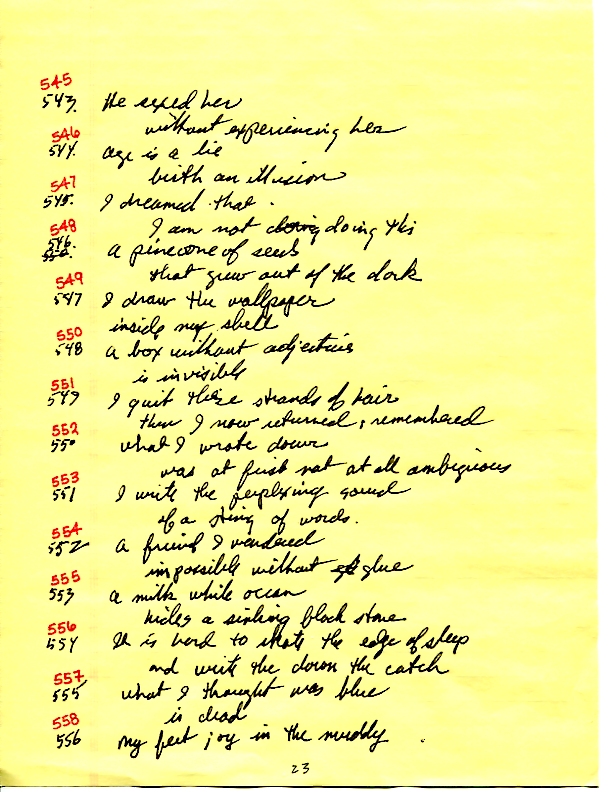 545
543. He sexed her
without experiencing her
546
544. age is a lie
birth an illusion
547
545. I dreamed that.
I am not doing doing this
548
546.
550. a pinecone of seeds
that grew out of the dark
549
547 I draw the wallpaper
inside my shell
550
548 a box without adjectives
is invisible
551
549 I quit these strands of hair
then I now returned, remembered
552
550 what I wrote down
was at first not at all ambiguous
553
551 I write the perplexing sound
of a string of words.
554
552 a friend I rendered
impossible without glue
555
553 a milk white ocean
hides a sinking black stone
556
554 It is hard to skate the edge of sleep
and write the down the catch
557
555 what I thought was blue
is dead
558
556 my feet joy in the muddy
23